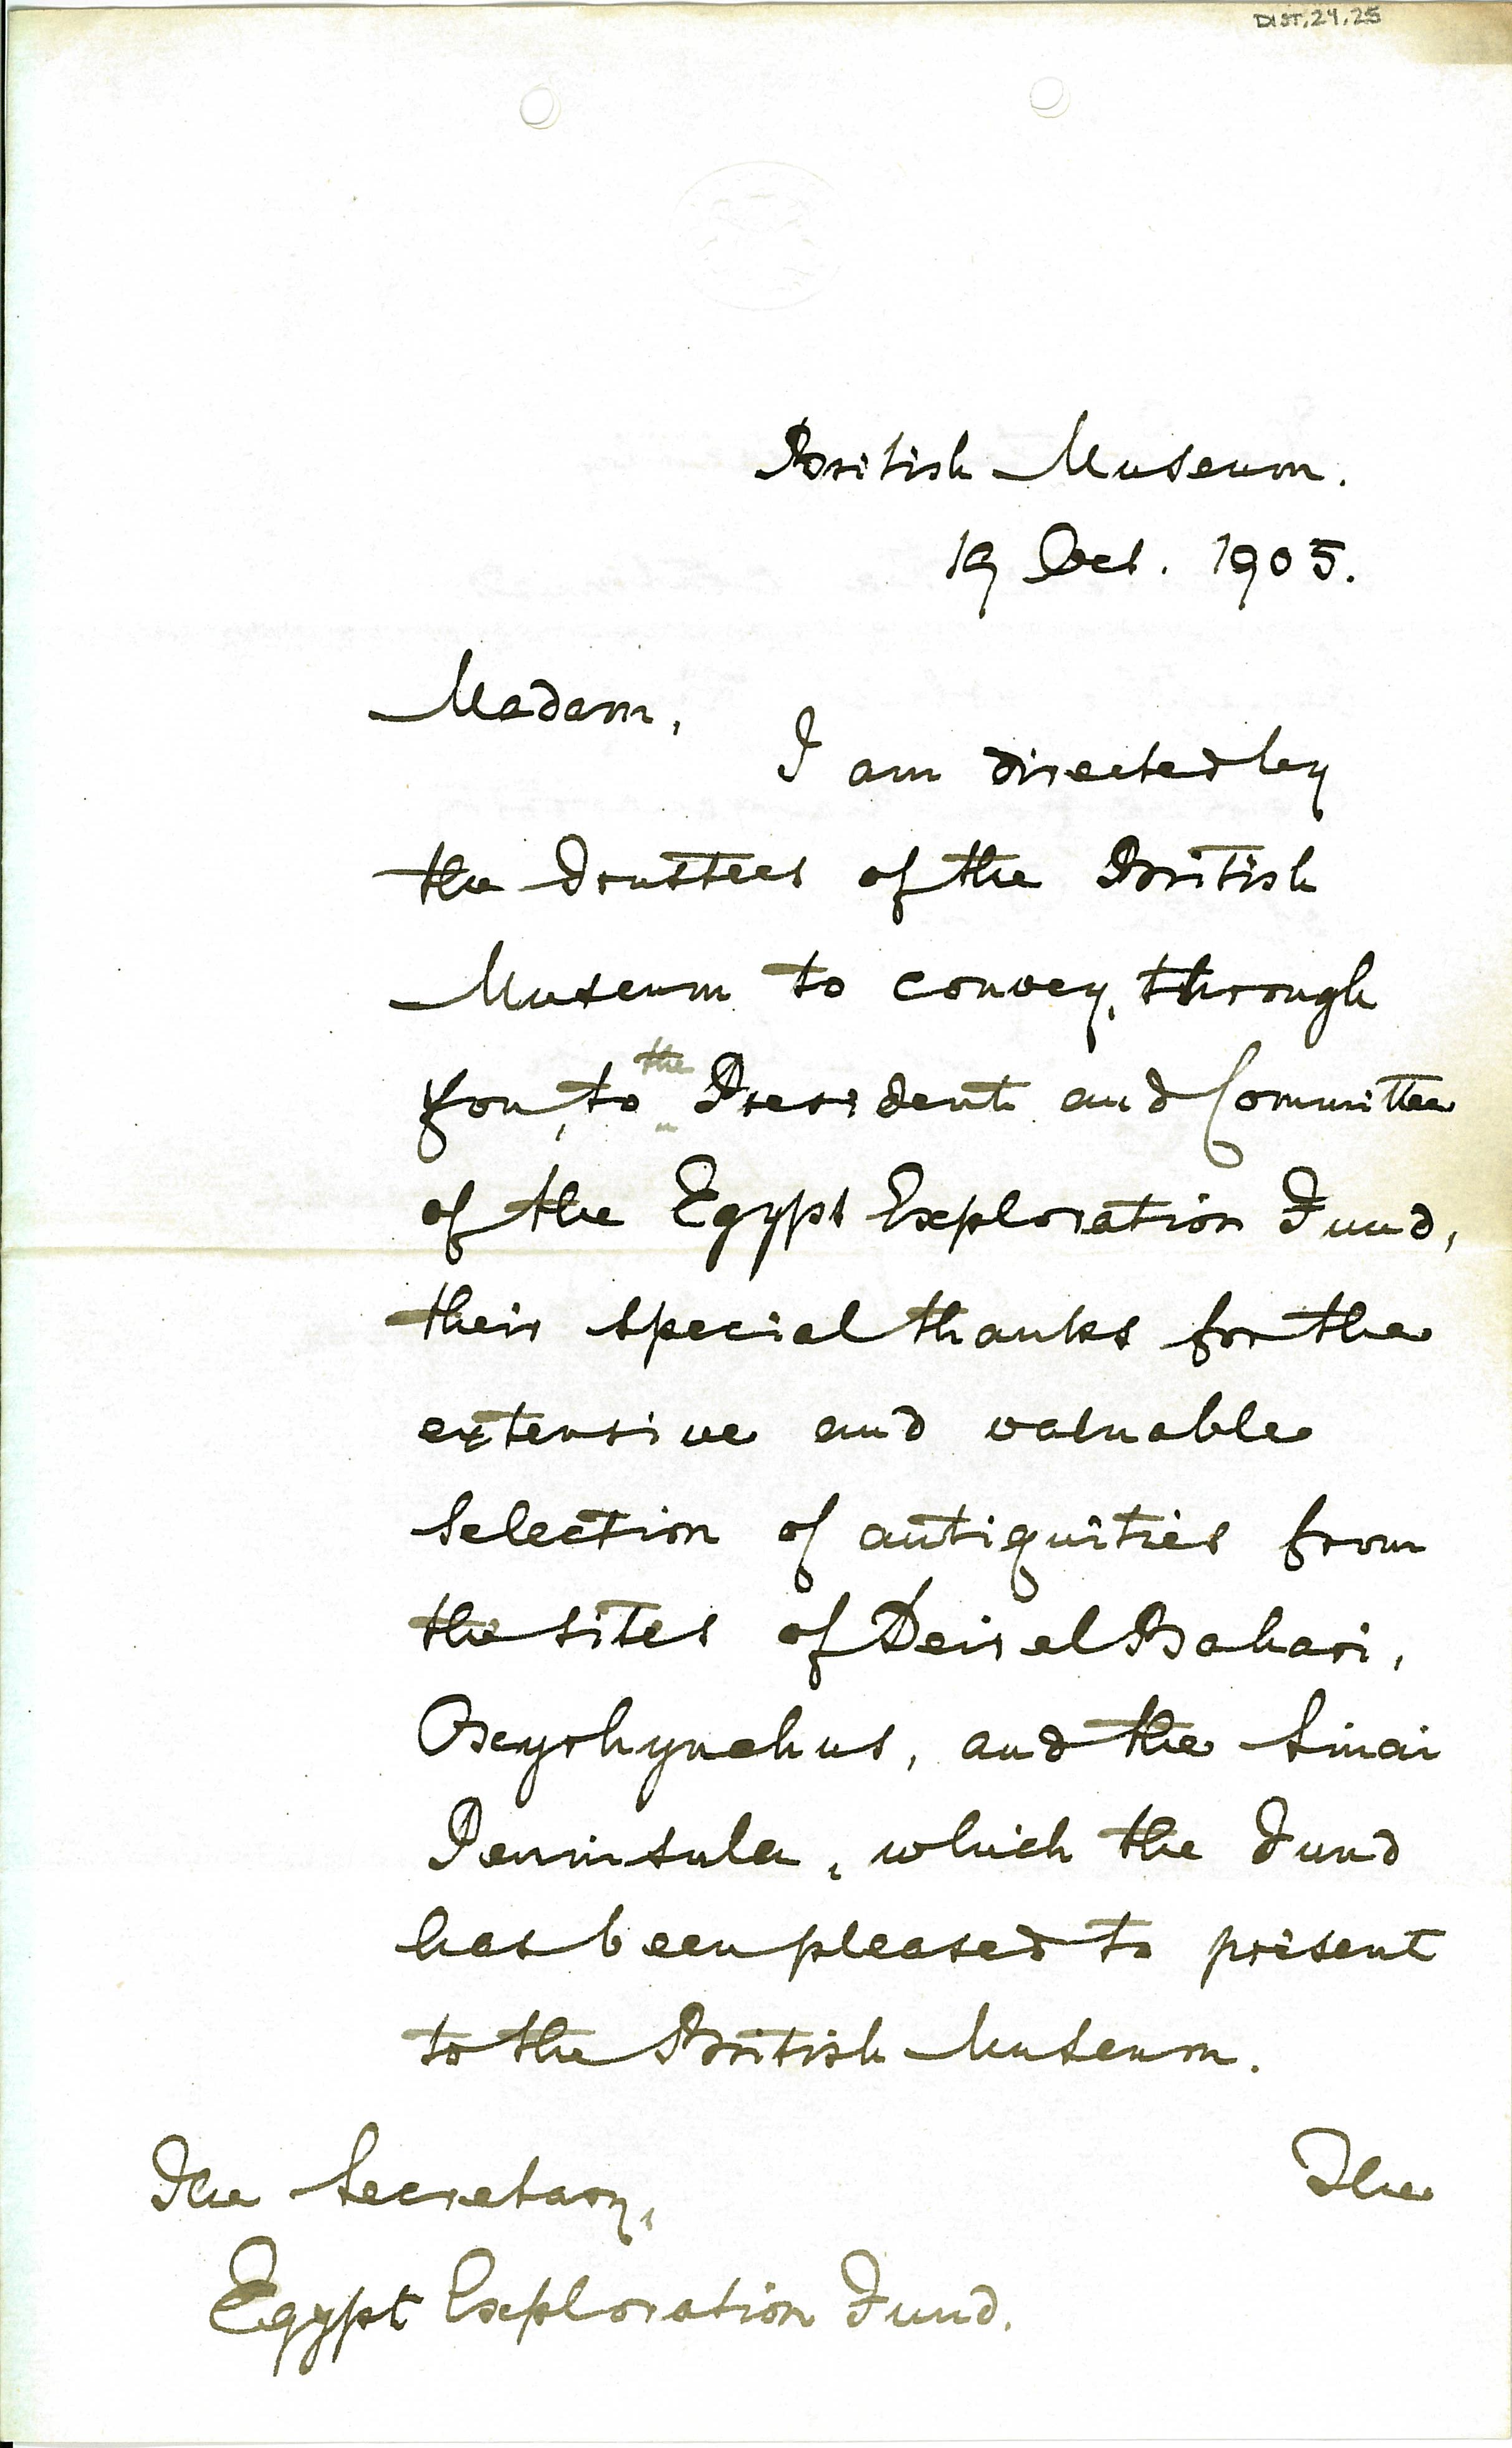 DIST.24.25
British Museum.
19 Oct. 1905.
Madam,
I am directed by
the Trustees of the British
Museum to convey, through
you, to the President and Committee
of the Egypt Exploration Fund,
their special thanks for the
extensive and valuable
selection of antiquities from
the sites of Deir el Bahari,
Oxyrhynchus, and the Sinai
Peninsula, which the Fund
has been pleased to present
to the British Museum.
The Secretary,
The
Egypt Exploration Fund.